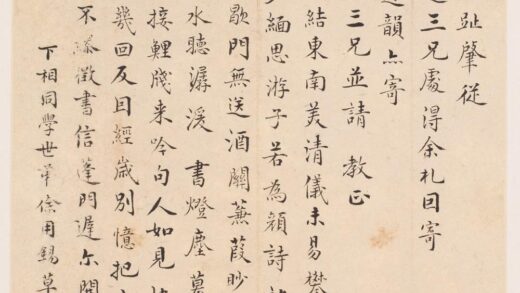 趾肇從
三兄處得余札回寄
韻亦寄
三兄並請 教正
結東南美清儀未易攀
緬思游子若為顏詩
歇門無送酒關蕪葭眇
水聽潺湲 書燈塵
接鯉牋来吟句人如見
幾回反 經歲別憶把
不 徵書信蓬門遲尔開
下相同學世弟徐用錫草